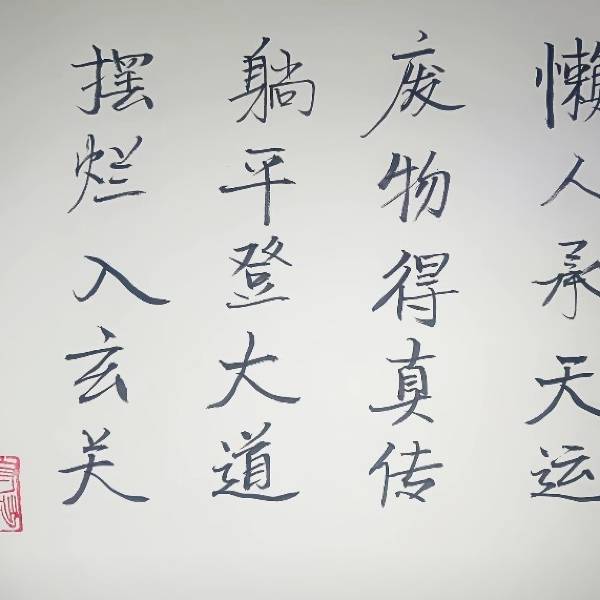 懒人承天运
废物得真传
躺平登大道
摆烂入玄关